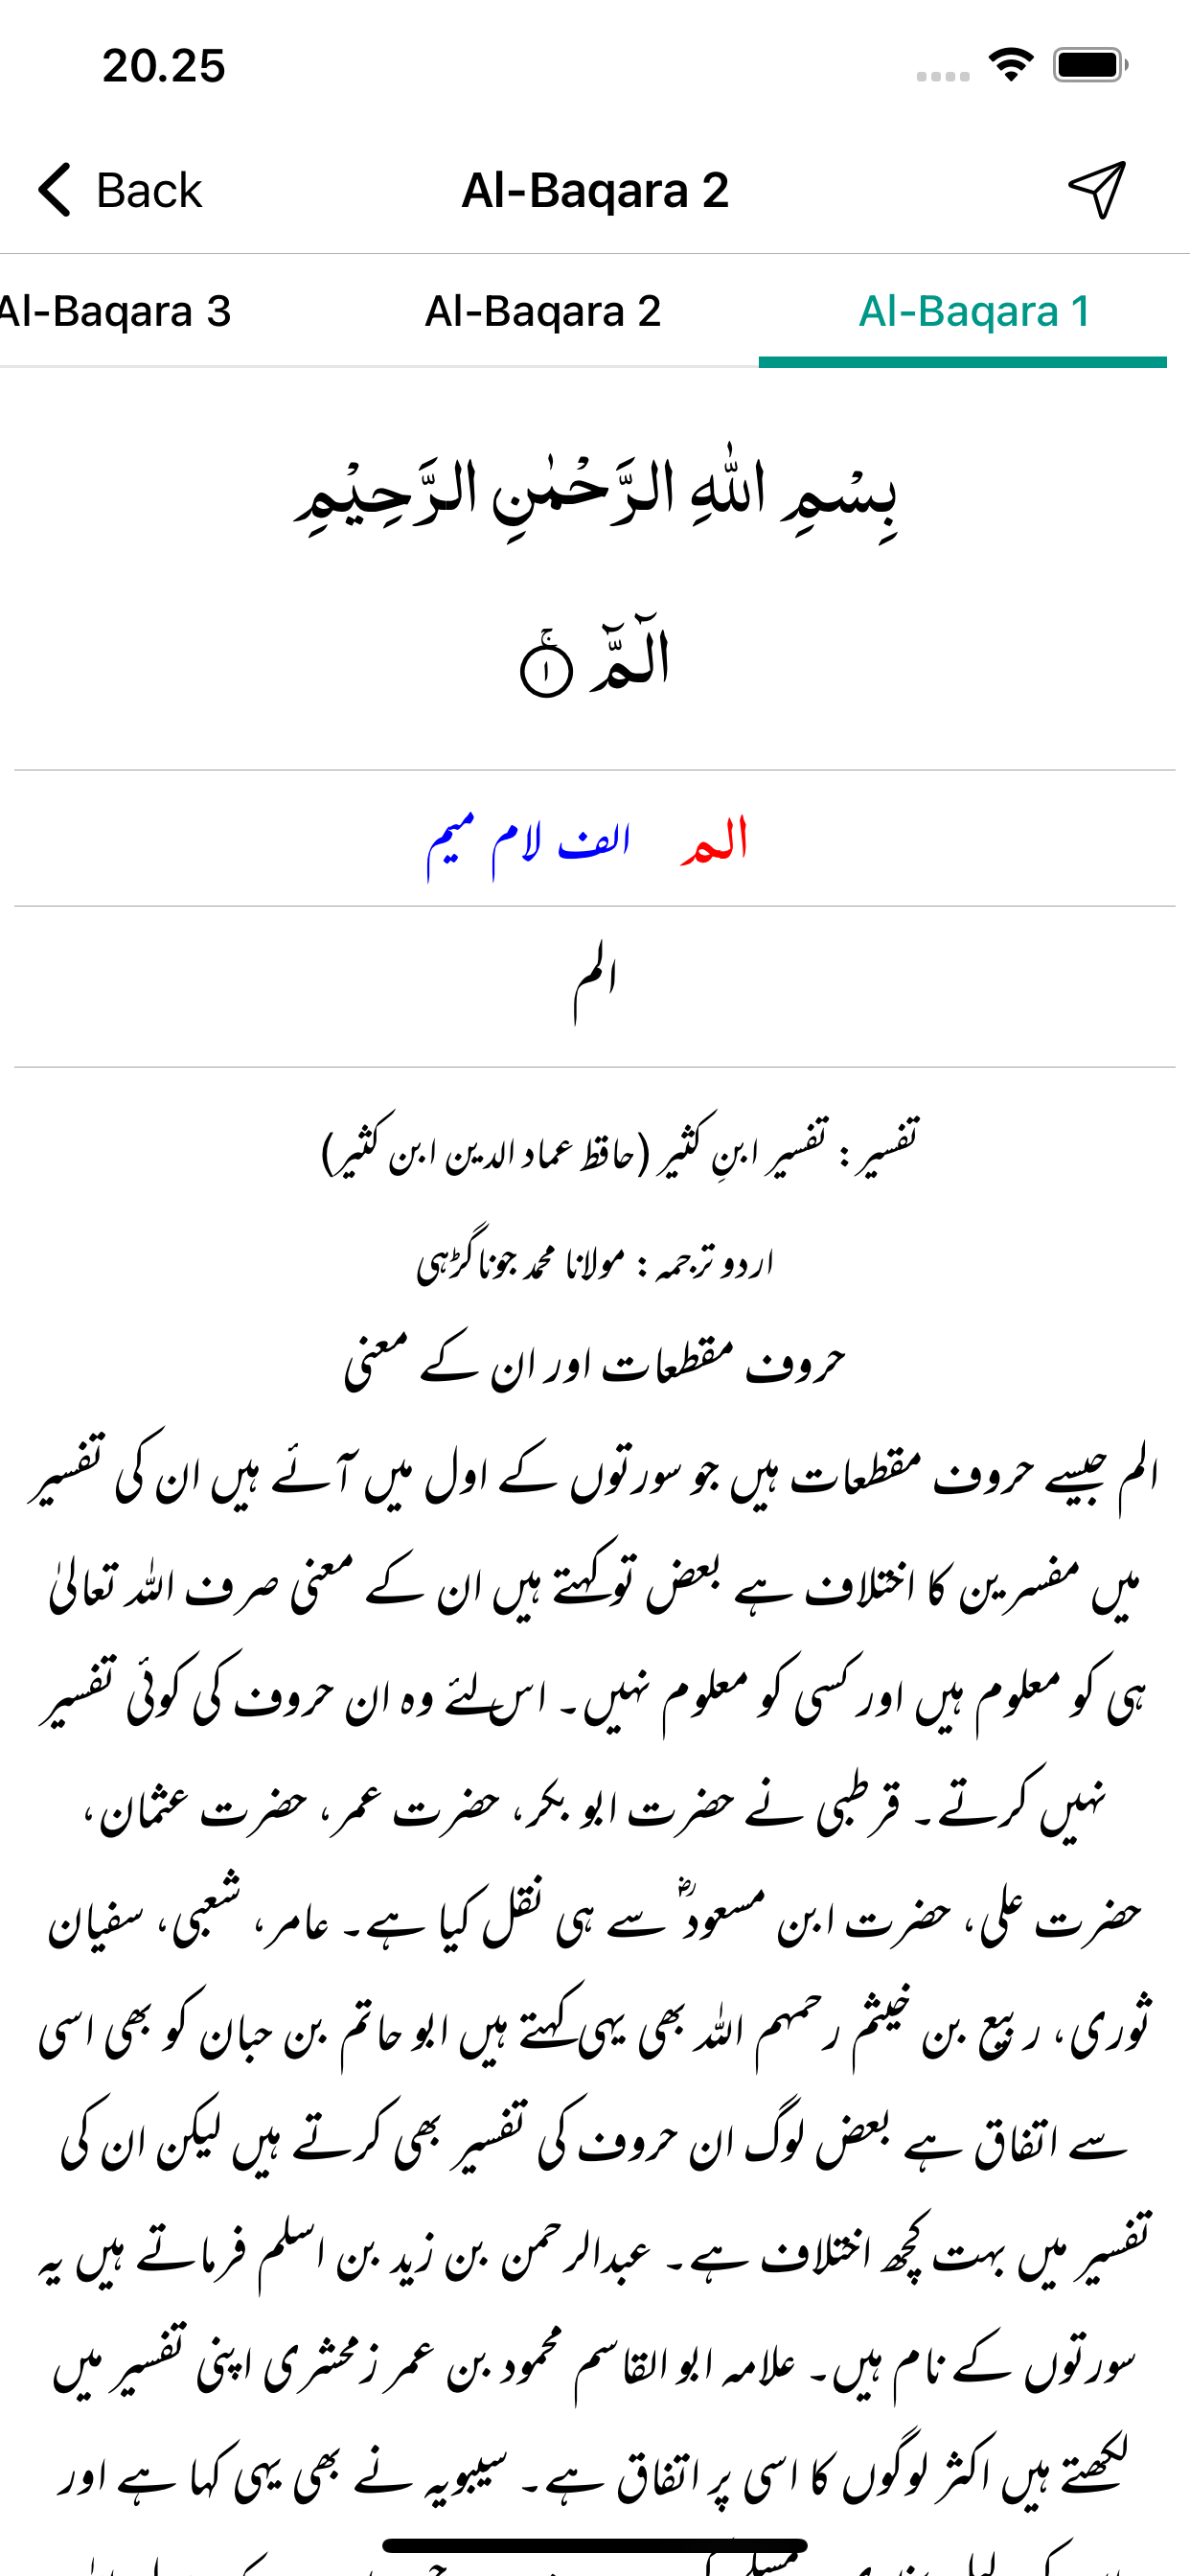 20.25
Back
Al-Baqara 2
Al-Baqara 3
Al-Baqara 2
Al-Baqara 1
بِسْمِ اللّٰهِ الرَّحْمٰنِ الرَّحِيْمِ
الٓمّٓ ۚ ۝۱
الم الف لام میم
الم
تفسیر : تفسیر ابنِ کثیر (حافظ عماد الدین ابن کثیر)
اردو ترجمہ : مولانا محمد جوناگڑہی
حروف مقطعات اور ان کے معنی
الم جیسے حروف مقطعات ہیں جو سورتوں کے اول میں آئے ہیں ان کی تفسیر
میں مفسرین کا اختلاف ہے بعض تو کہتے ہیں ان کے معنی صرف اللہ تعالیٰ
ہی کو معلوم ہیں اور کسی کو معلوم نہیں۔ اس لئے وہ ان حروف کی کوئی تفسیر
نہیں کرتے۔ قرطبی نے حضرت ابو بکر، حضرت عمر، حضرت عثمان،
حضرت علی، حضرت ابن مسعودؓ سے ہی نقل کیا ہے۔ عامر، شعبی، سفیان
ثوری، ربیع بن خیثم رحمہم اللہ بھی یہی کہتے ہیں ابو حاتم بن حبان کو بھی اسی
سے اتفاق ہے بعض لوگ ان حروف کی تفسیر بھی کرتے ہیں لیکن ان کی
تفسیر میں بہت کچھ اختلاف ہے۔ عبدالرحمن بن زید بن اسلم فرماتے ہیں یہ
سورتوں کے نام ہیں۔ علامہ ابو القاسم محمود بن عمر زمحشری اپنی تفسیر میں
لکھتے ہیں اکثر لوگوں کا اسی پر اتفاق ہے۔ سیبویہ نے بھی یہی کہا ہے اور